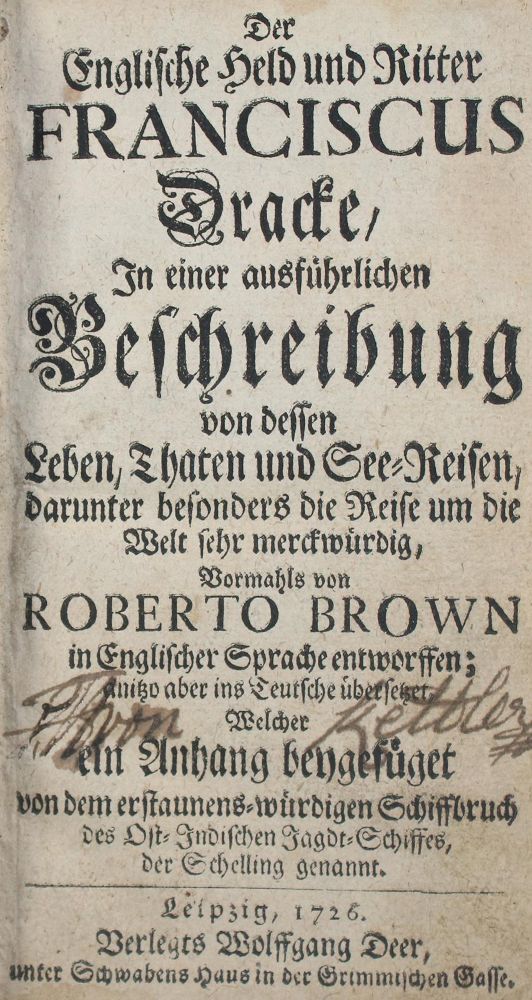 Der
Englische Held und Ritter
FRANCISCUS
Dracke/
In einer ausführlichen
Beschreibung
von dessen
Leben, Thaten und See-Reisen,
darunter besonders die Reise um die
Welt sehr merckwürdig,
Vormahls von
ROBERTO BROWN
in Englischer Sprache entworffen;
anitzo aber ins Teutsche übersetzet,
Welcher
von Kettler
ein Anhang beygefüget
von dem erstaunens-würdigen Schiffbruch
des Ost-Indischen Jagdt-Schiffes,
der Schelling genannt.
Leipzig, 1726.
Verlegts Wolffgang Deer,
unter Schwabens Haus in der Grimmischen Gasse.